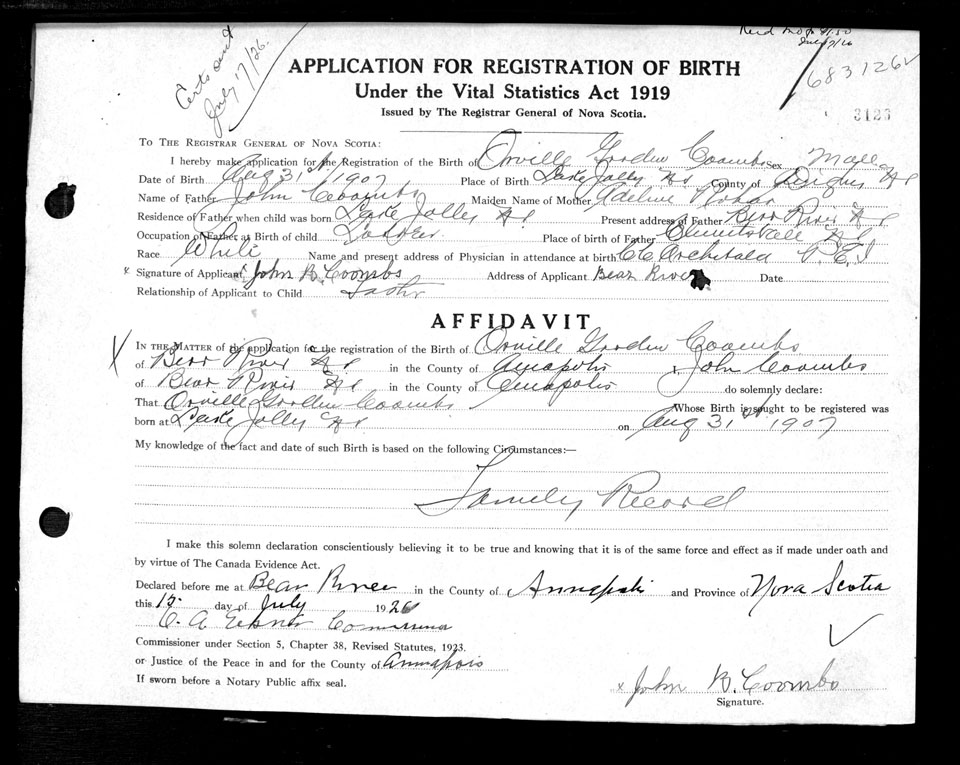 Certs sent
July 17/26.
July 7/26
683126
3126
APPLICATION FOR REGISTRATION OF BIRTH
Under the Vital Statistics Act 1919
Issued by The Registrar General of Nova Scotia.
TO THE REGISTRAR GENERAL OF NOVA SCOTIA:
I hereby make application for the Registration of the Birth of Orville Gorden Coombs Sex Male
Date of Birth Aug 31st 1907 Place of Birth Lake Jolley N S County of Digby N S
Name of Father John Coombs Maiden Name of Mother Adeline
Residence of Father when child was born Lake Jolley N S Present address of Father Bear River N S
Occupation of Father at Birth of child Place of birth of Father N S
Race White Name and present address of Physician in attendance at birth Archibald P. E. I
x Signature of Applicant John B. Coombs Address of Applicant Bear River Date
Relationship of Applicant to Child
AFFIDAVIT
X IN THE MATTER of the application for the registration of the Birth of Orville Gorden Coombs
of Bear River N S in the County of Anapolis x John Coombs
of Bear River N S in the County of Anapolis do solemnly declare:
That Orville Gorden Coombs Whose Birth is sought to be registered was
born at Lake Jolley N S on Aug 31st 1907
My knowledge of the fact and date of such Birth is based on the following Circumstances:—
Family Record
I make this solemn declaration conscientiously believing it to be true and knowing that it is of the same force and effect as if made under oath and
by virtue of The Canada Evidence Act.
Declared before me at Bear River in the County of Annapolis and Province of Nova Scotia
this 15 day of July 1926
Commissioner under Section 5, Chapter 38, Revised Statutes, 1923.
or Justice of the Peace in and for the County of Annapolis
If sworn before a Notary Public affix seal.
x John B. Coombs
Signature.